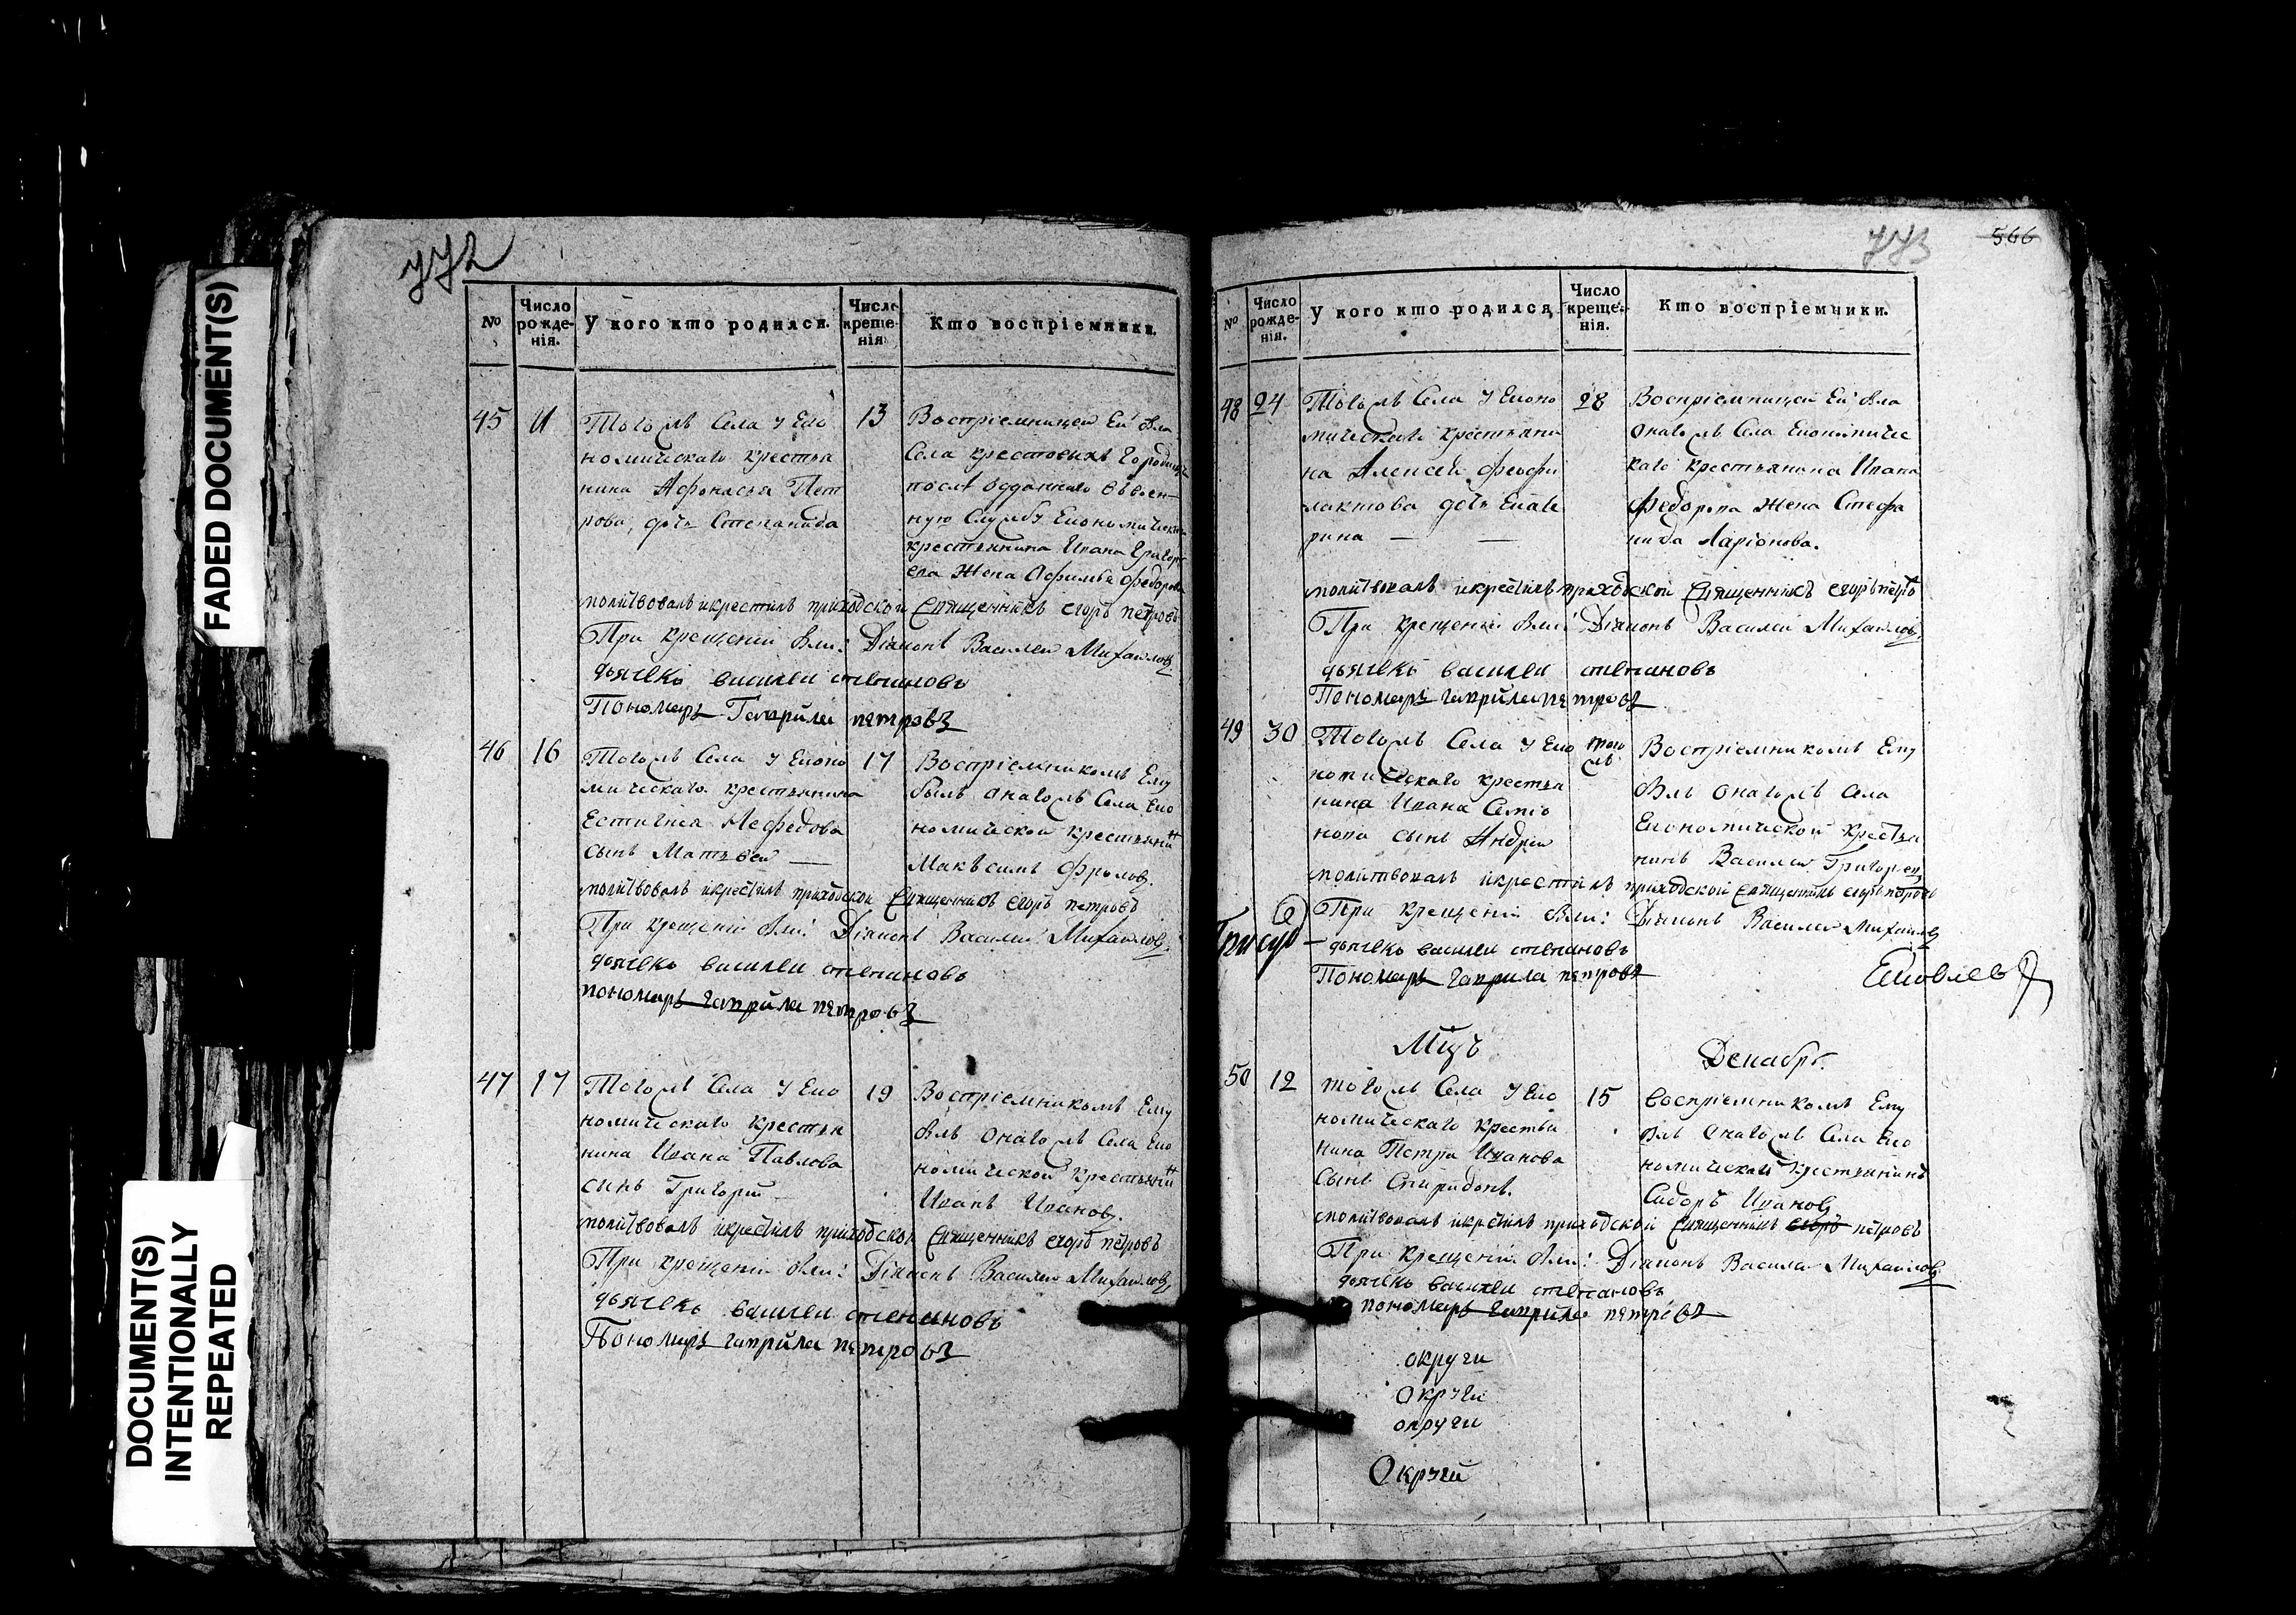 FADED DOCUMENT(S)
DOCUMENT(S)
INTENTIONALLY
REPEATED
772
№
Число рожде-нія.
У кого кто родился.
Число креще-нія
Кто воспріемники.
45
11
13
Тогожъ Села у Еко
номическаго крестья
нина Афонасья Пет
рова, дочь Степанида
Воспріемницей Ей была
Села крестовыхъ Городищъ
послѣ отданнаго въ воен-
ную Службу Економическа
крестьянина Ивана Григорь
ева Жена Афимья Федорова
молитвовалъ и крестилъ приходской Священникъ егоръ петровъ
При крещеніи были: Діяконъ Василей Михаиловъ
дьячекъ василеи степановъ
Пономарь Гаврила петровъ
46
16
17
Тогожъ Села у Еконо
мическаго крестьянина
Естигнея Мефедова
сынъ Матвѣей —
Воспріемникомъ Ему
былъ онагожъ Села Еко
номической крестьянинъ
Макъсимъ Фроловъ.
молитвовалъ и крестилъ приходской Священникъ егоръ петровъ
При крещеніи были: Діяконъ Василей Михаиловъ
дьячекъ василеи степановъ
пономарь гаврила петровъ
47
17
19
Тогожъ Села у Еко
номическаго крестья
нина Ивана Павлова
сынъ Григорій
Воспріемникомъ Ему
былъ онагожъ Села Еко
номической крестьянинъ
Иванъ Ивановъ.
молитвовалъ и крестилъ приходской Священникъ егоръ петровъ
При крещеніи были: Діяконъ Василей Михаиловъ
дьячекъ василеи степановъ
Пономарь гаврила петровъ
773
566
№
Число рожде-нія.
У кого кто родился
Число креще-нія.
Кто воспріемники.
48
24
28
Тогожъ Села у Еконо
мическаго крестьяни
на Алексея Феофи
лактова дочь Екате
рина — —
Воспріемницей Ей была
онагожъ Села Економичес
каго крестьянина Ивана
Федорова Жена Стефа
нида Ларіонова.
молитвовалъ и крестилъ приходской Священникъ егоръ петровъ
При крещеніи были: Діяконъ Василей Михаиловъ
дьячекъ василеи степановъ
Пономарь гаврила петровъ
49
30
того жъ
Тогожъ Села у Еко
номическаго крестья
нина Ивана Семіо
нова сынъ Андрей
Воспріемникомъ Ему
былъ онагожъ Села
Економической крестья
нинъ Василей Григорьевъ
молитвовалъ и крестилъ приходской Священникъ егоръ петровъ
При крещеніи были: Діяконъ Василей Михаиловъ
дьячекъ василеи степановъ
Пономарь гаврила петровъ
Мцъ Декабрь.
50
12
15
тогожъ Села у Еко
номическаго крестья
нина Петра Иванова
Сынъ Спиридонъ.
Воспріемникомъ Ему
былъ онагожъ Села Еко
номической крестьянинъ
Сидоръ Ивановъ
молитвовалъ и крестилъ приходской Священникъ егоръ петровъ
При крещеніи были: Діяконъ Василей Михаиловъ
дьячекъ василеи степановъ
пономарь гаврила петровъ
округи
Округи
округи
Округи